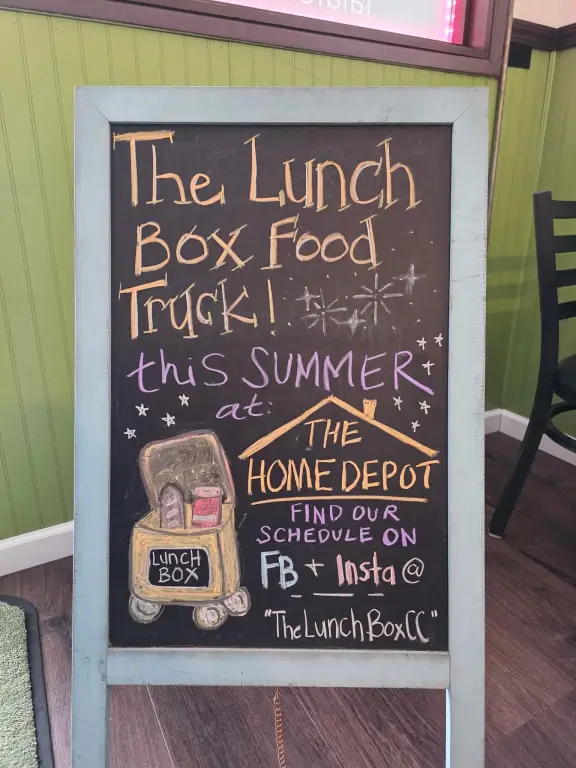 The Lunch
Box Food
Truck!
this SUMMER
at:
THE
HOME DEPOT
FIND OUR
SCHEDULE ON
FB + Insta @
"TheLunch.BoxCC"
LUNCH
BOX